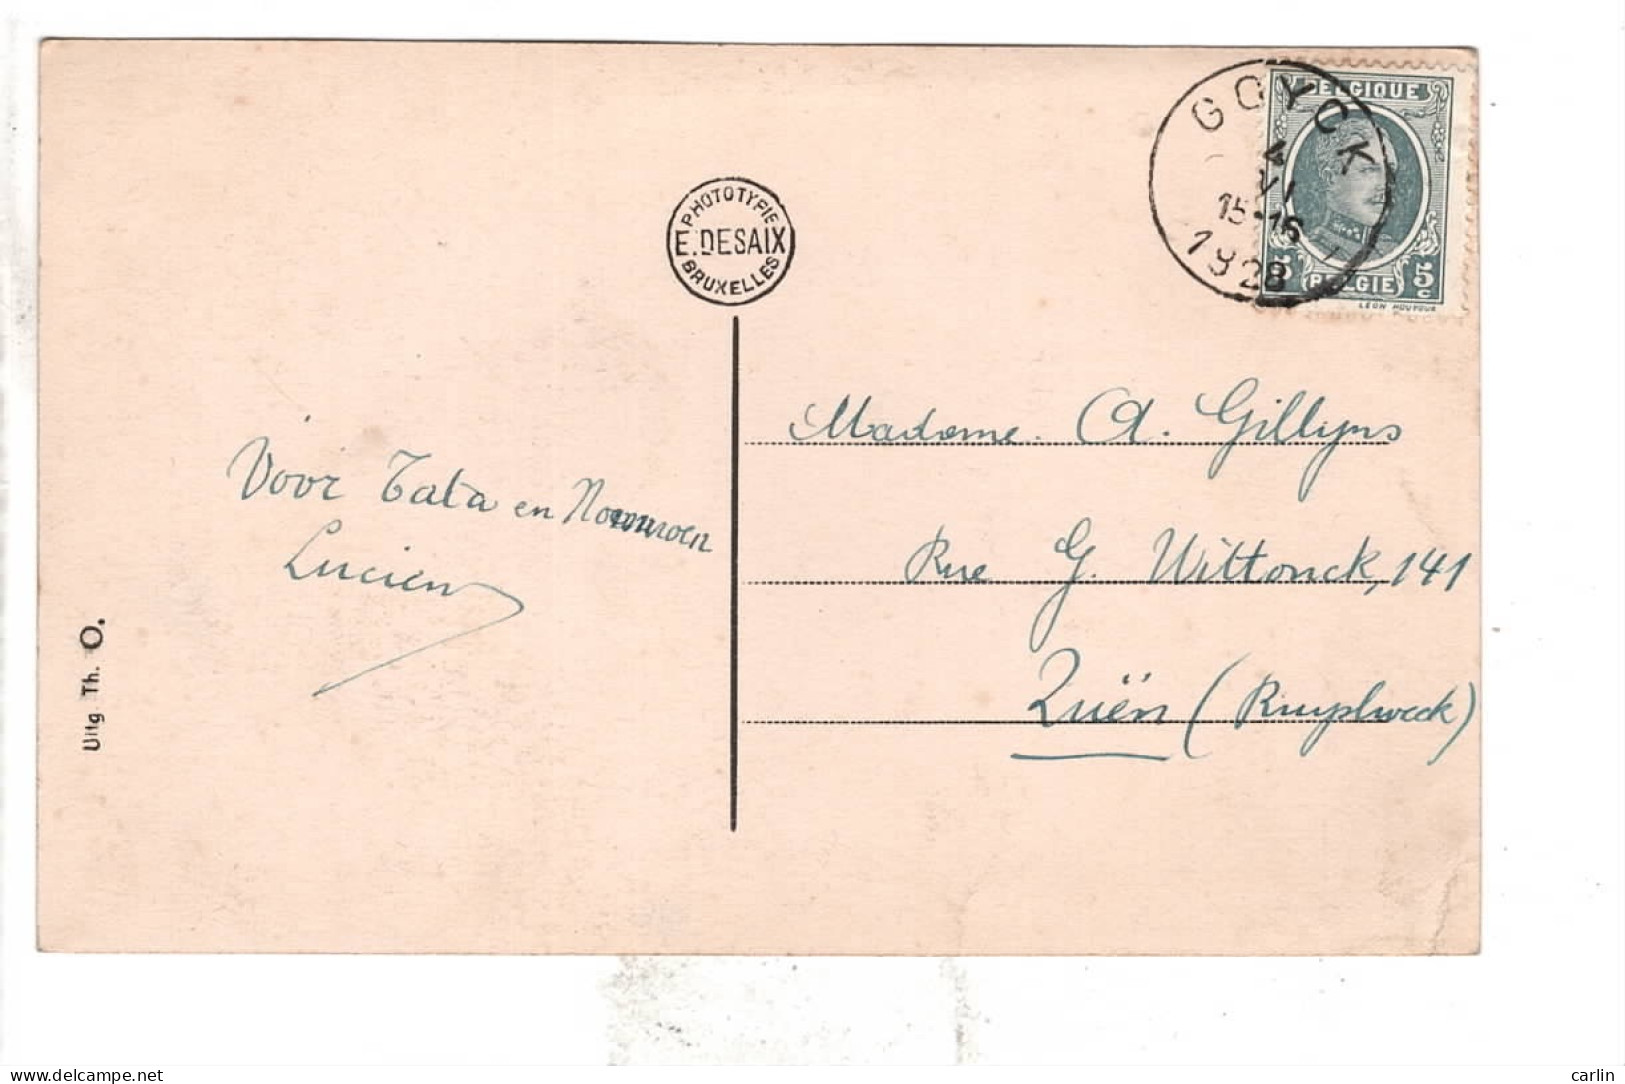 GOYCK
4
VI
15-16
1928
BELGIQUE
5 BELGIE 5
c
LEON HOUYOUX
PHOTOTYPIE
E. DESAIX
BRUXELLES
Voor Tata en
Lucien
Madame. A. Gillyns
Rue G. Wittonck, 141
Zuën (Ruysbroeck)
Uitg Th. O.
www.delcampe.net
carlin